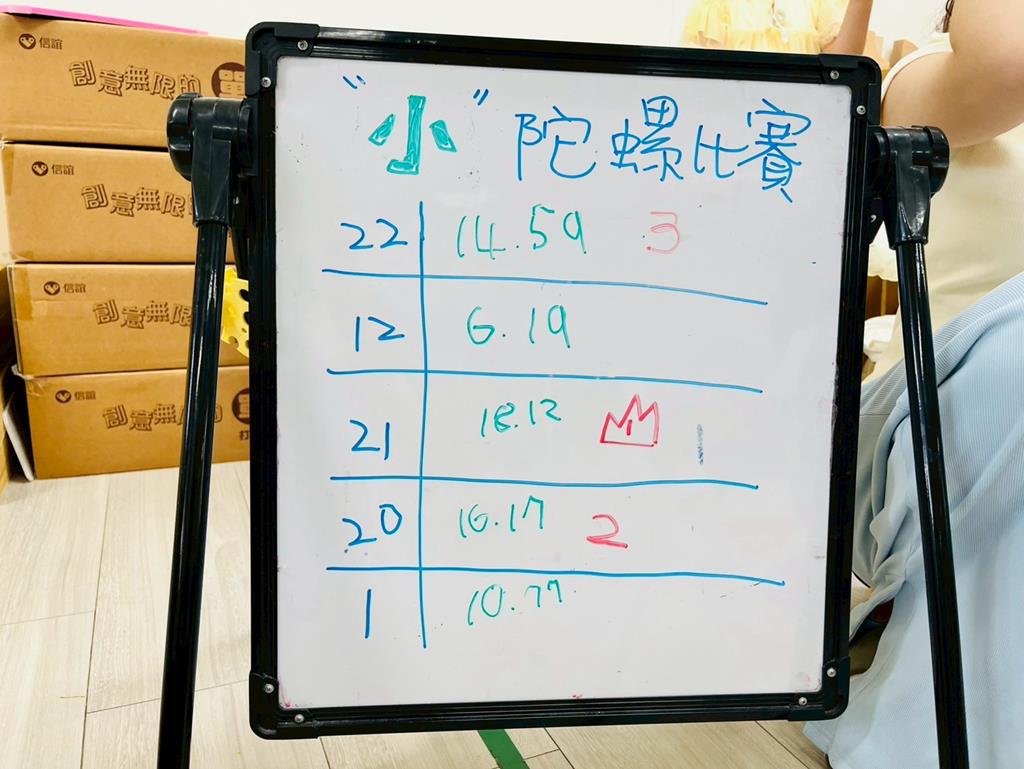 信誼
創意無限的
單
信誼
創意無限
信誼
創意無限
信誼
創意無限的
"小"陀螺比賽
22 14.59 3
12 6.19
21 18.12 1
20 16.17 2
1 10.77